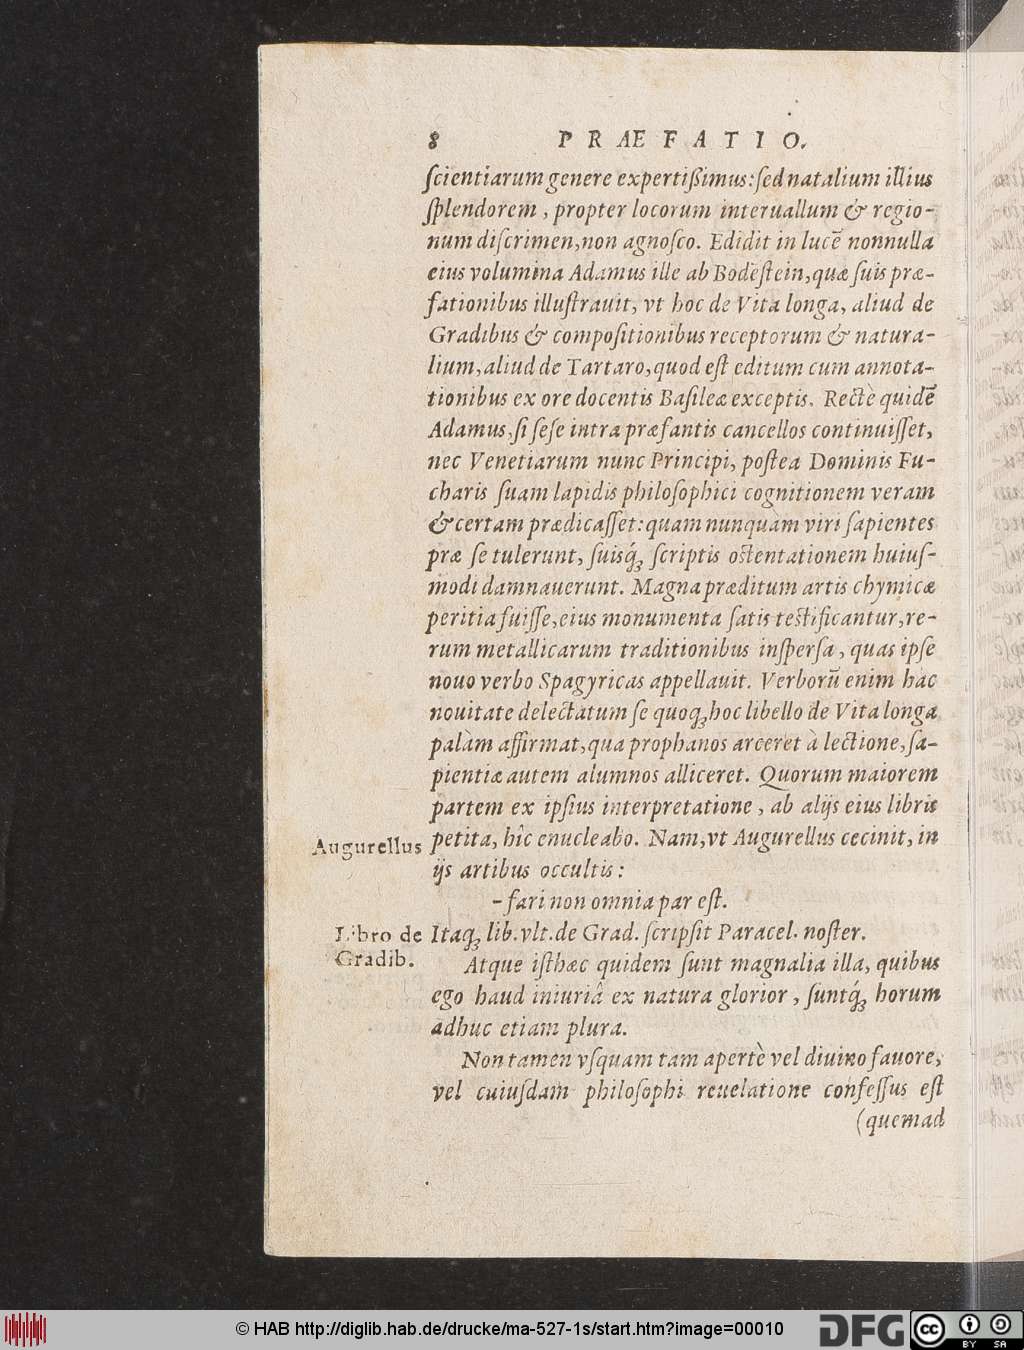 8 PRÆFATIO.
ſcientiarum genere expertißimus: ſed natalium illius
ſplendorem, propter locorum interuallum & regio-
num diſcrimen, non agnoſco. Edidit in lucē nonnulla
eius volumina Adamus ille ab Bodeſtein, quæ ſuis præ-
fationibus illuſtrauit, vt hoc de Vita longa, aliud de
Gradibus & compoſitionibus receptorum & natura-
lium, aliud de Tartaro, quod eſt editum cum annota-
tionibus ex ore docentis Baſileæ exceptis. Rectè quidē
Adamus, ſi ſeſe intra præfantis cancellos continuiſſet,
nec Venetiarum nunc Principi, poſtea Dominis Fu-
charis ſuam lapidis philoſophici cognitionem veram
& certam prædicaſſet: quam nunquàm viri ſapientes
præ ſe tulerunt, ſuisq́; ſcriptis oſtentationem huiuſ-
modi damnauerunt. Magna præditum artis chymicæ
peritia fuiſſe, eius monumenta ſatis teſtificantur, re-
rum metallicarum traditionibus inſperſa, quas ipſe
nouo verbo Spagyricas appellauit. Verborū enim hac
nouitate delectatum ſe quoq; hoc libello de Vita longa
palàm affirmat, qua prophanos arceret à lectione, ſa-
pientiæ autem alumnos alliceret. Quorum maiorem
partem ex ipſius interpretatione, ab alijs eius libris
petita, hîc enucleabo. Nam, vt Augurellus cecinit, in
Augurellus
ijs artibus occultis:
- fari non omnia par eſt.
Itaq; lib. vlt. de Grad. ſcripſit Paracel. noſter.
Libro de
Gradib.
Atque iſthæc quidem ſunt magnalia illa, quibus
ego haud iniuriâ ex natura glorior, ſuntq́; horum
adhuc etiam plura.
Non tamen vſquam tam apertè vel diuino fauore,
vel cuiuſdam philoſophi reuelatione confeſſus eſt
(quemad
© HAB http://diglib.hab.de/drucke/ma-527-1s/start.htm?image=00010
DFG
cc
BY SA